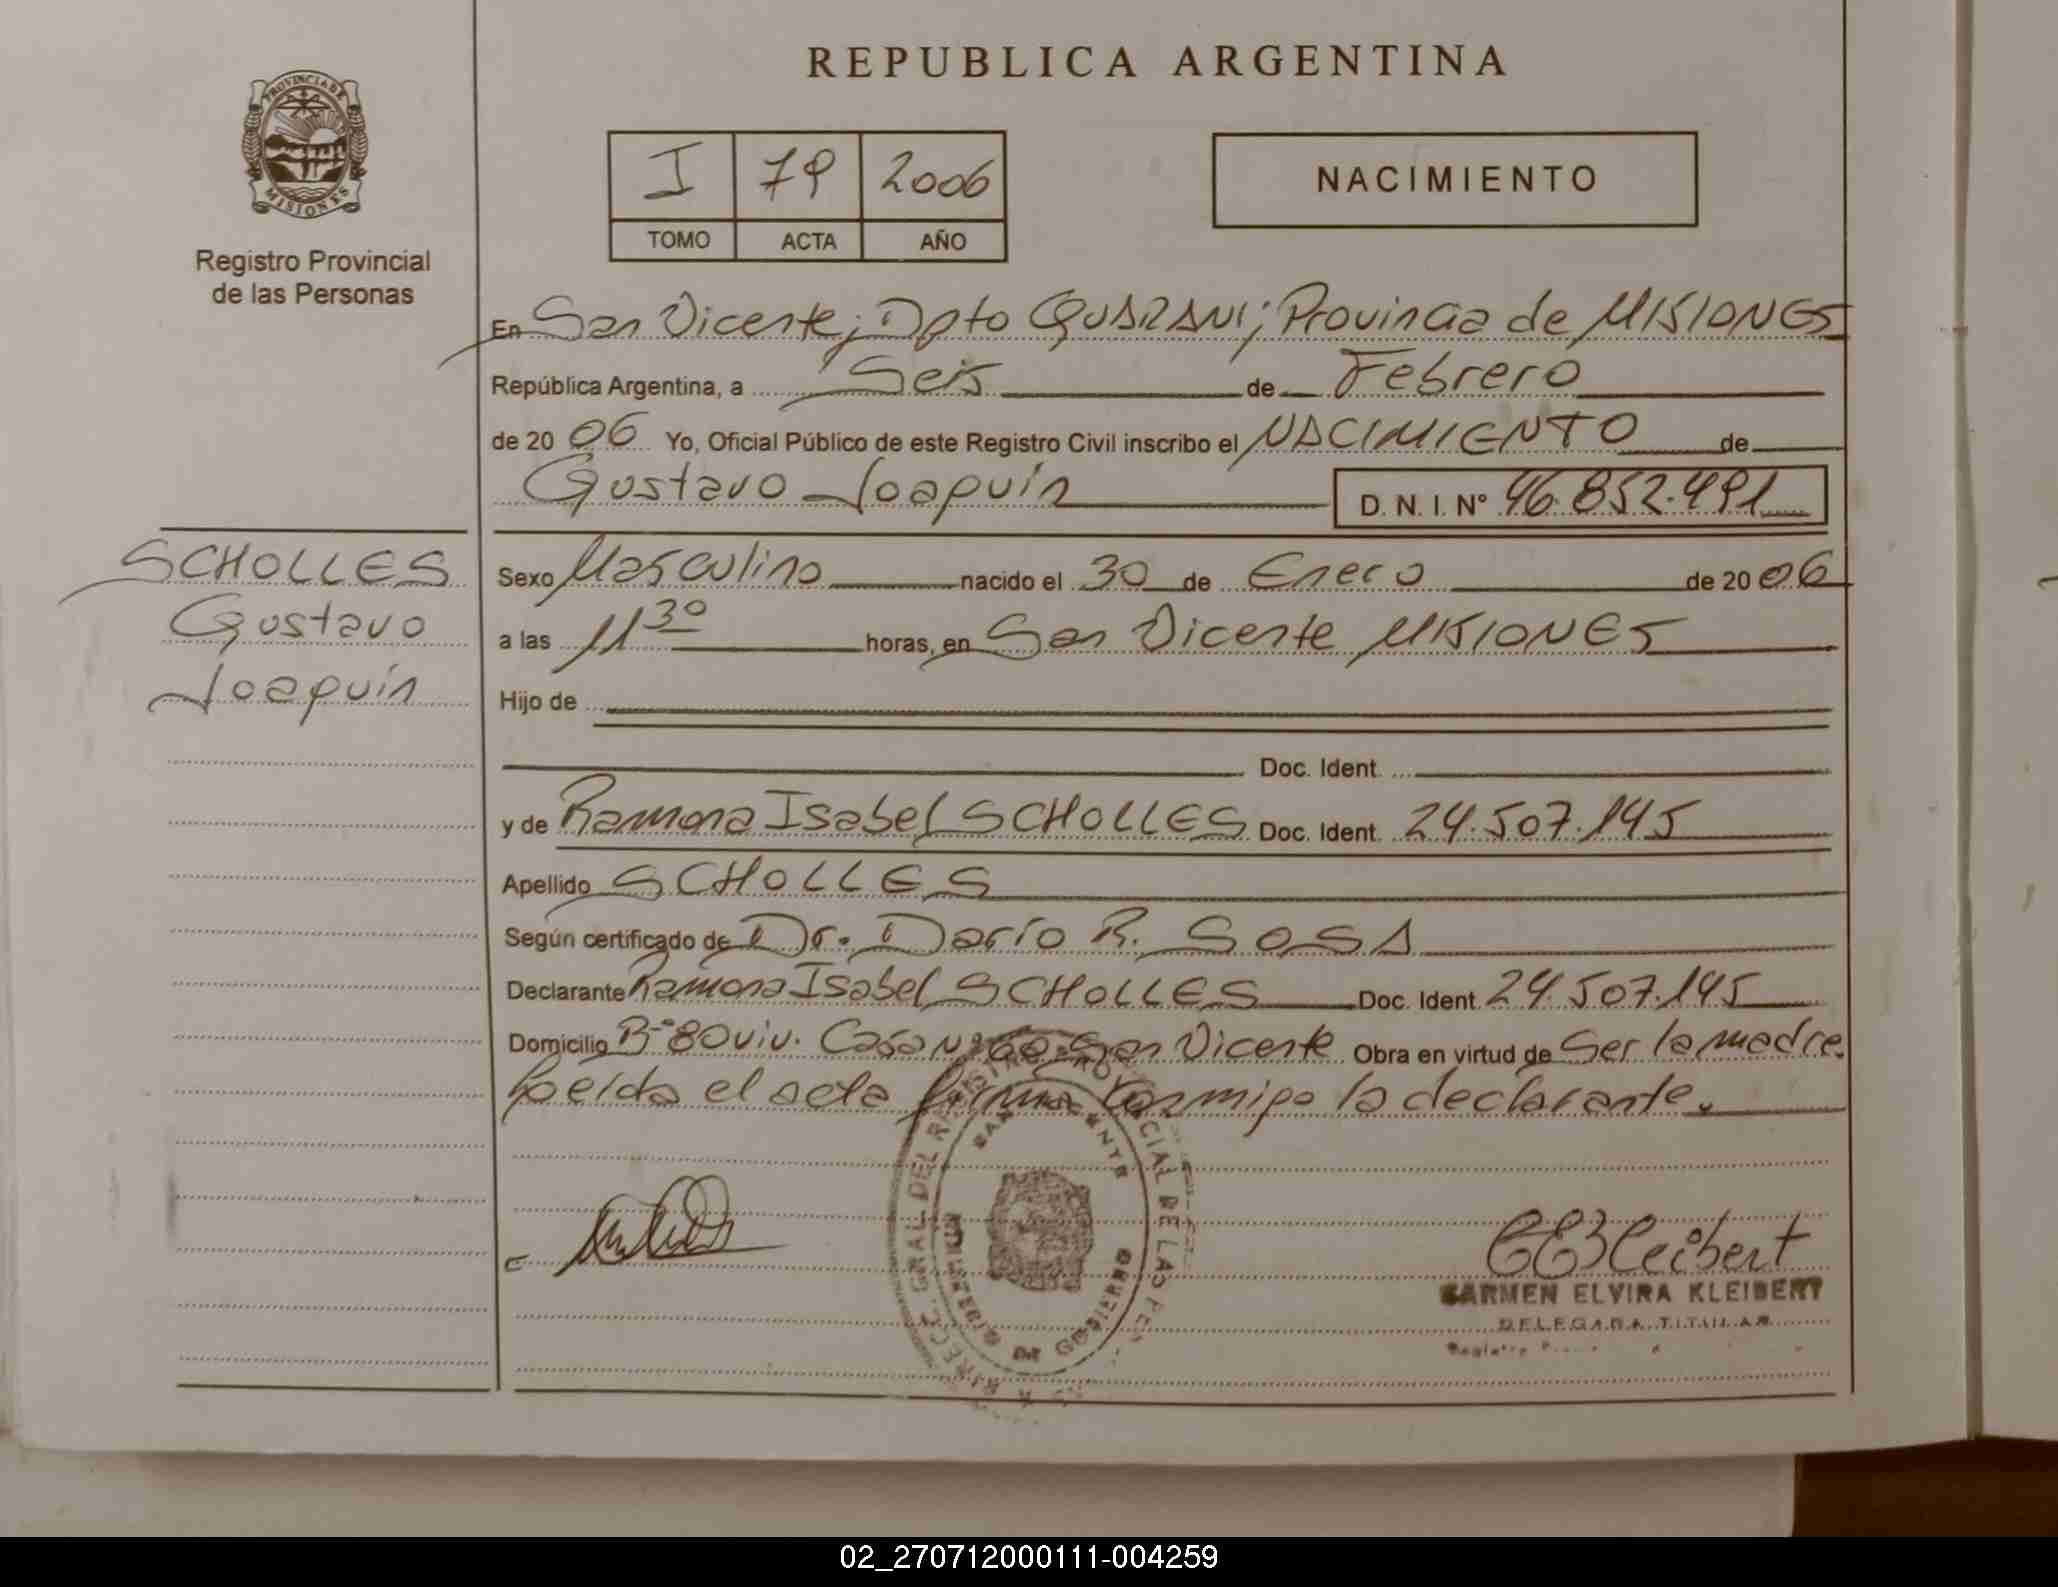 REPUBLICA ARGENTINA
PROVINCIA DE
MISIONES
Registro Provincial
de las Personas
I 79 2006
TOMO ACTA AÑO
NACIMIENTO
En San Vicente; Dpto GUARANI; Provincia de MISIONES
República Argentina, a Seis de Febrero
de 2006 Yo, Oficial Público de este Registro Civil inscribo el NACIMIENTO de
Gustavo Joaquín D. N. I. Nº 46.852.491
SCHOLLES
Gustavo
Joaquín
Sexo Masculino nacido el 30 de Enero de 2006
a las 11 30 horas, en San Vicente MISIONES
Hijo de
Doc. Ident.
y de Ramona Isabel SCHOLLES Doc. Ident. 24.507.145
Apellido SCHOLLES
Según certificado de Dr. Darío R. SOSA
Declarante Ramona Isabel SCHOLLES Doc. Ident. 24.507.145
Domicilio Bº 80 viv. Casa Nº San Vicente Obra en virtud de Ser la madre.
Leída el acta firma conmigo la declarante.
CARMEN ELVIRA KLEIBERT
DELEGADA TITULAR
02_270712000111-004259